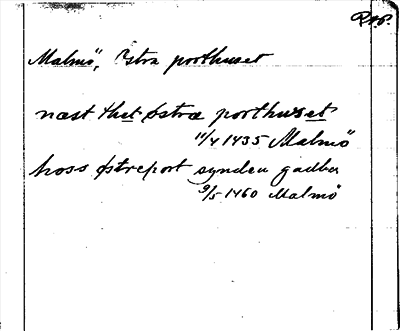 Malmö, Östra porthuset
næst thet østræ porthuset
11/4 1435 Malmö
hoss østreport synden gadhen
9/5 1460 Malmö